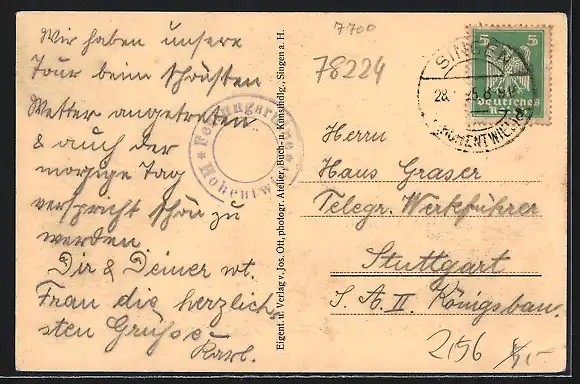 Wir haben unsere
Tour beim schönsten
Wetter angetreten
& auch der
morgige Tag
verspricht schön zu
werden.
Dir & Deiner wt.
Frau die herzlich-
sten Grüsse
Karl.
Festungsru
Hohentwi
Eigent. u. Verlag v. Jos. Ott, photogr. Atelier, Buch- u. Kunsthdlg., Singen a. H.
7700
78224
SINGEN
28.
HOHENTWIEL
5 5
Deutsches
Herrn
Haus Graser
Telegr. Werkführer
Stuttgart
S. A. II. Königsbau.
2156